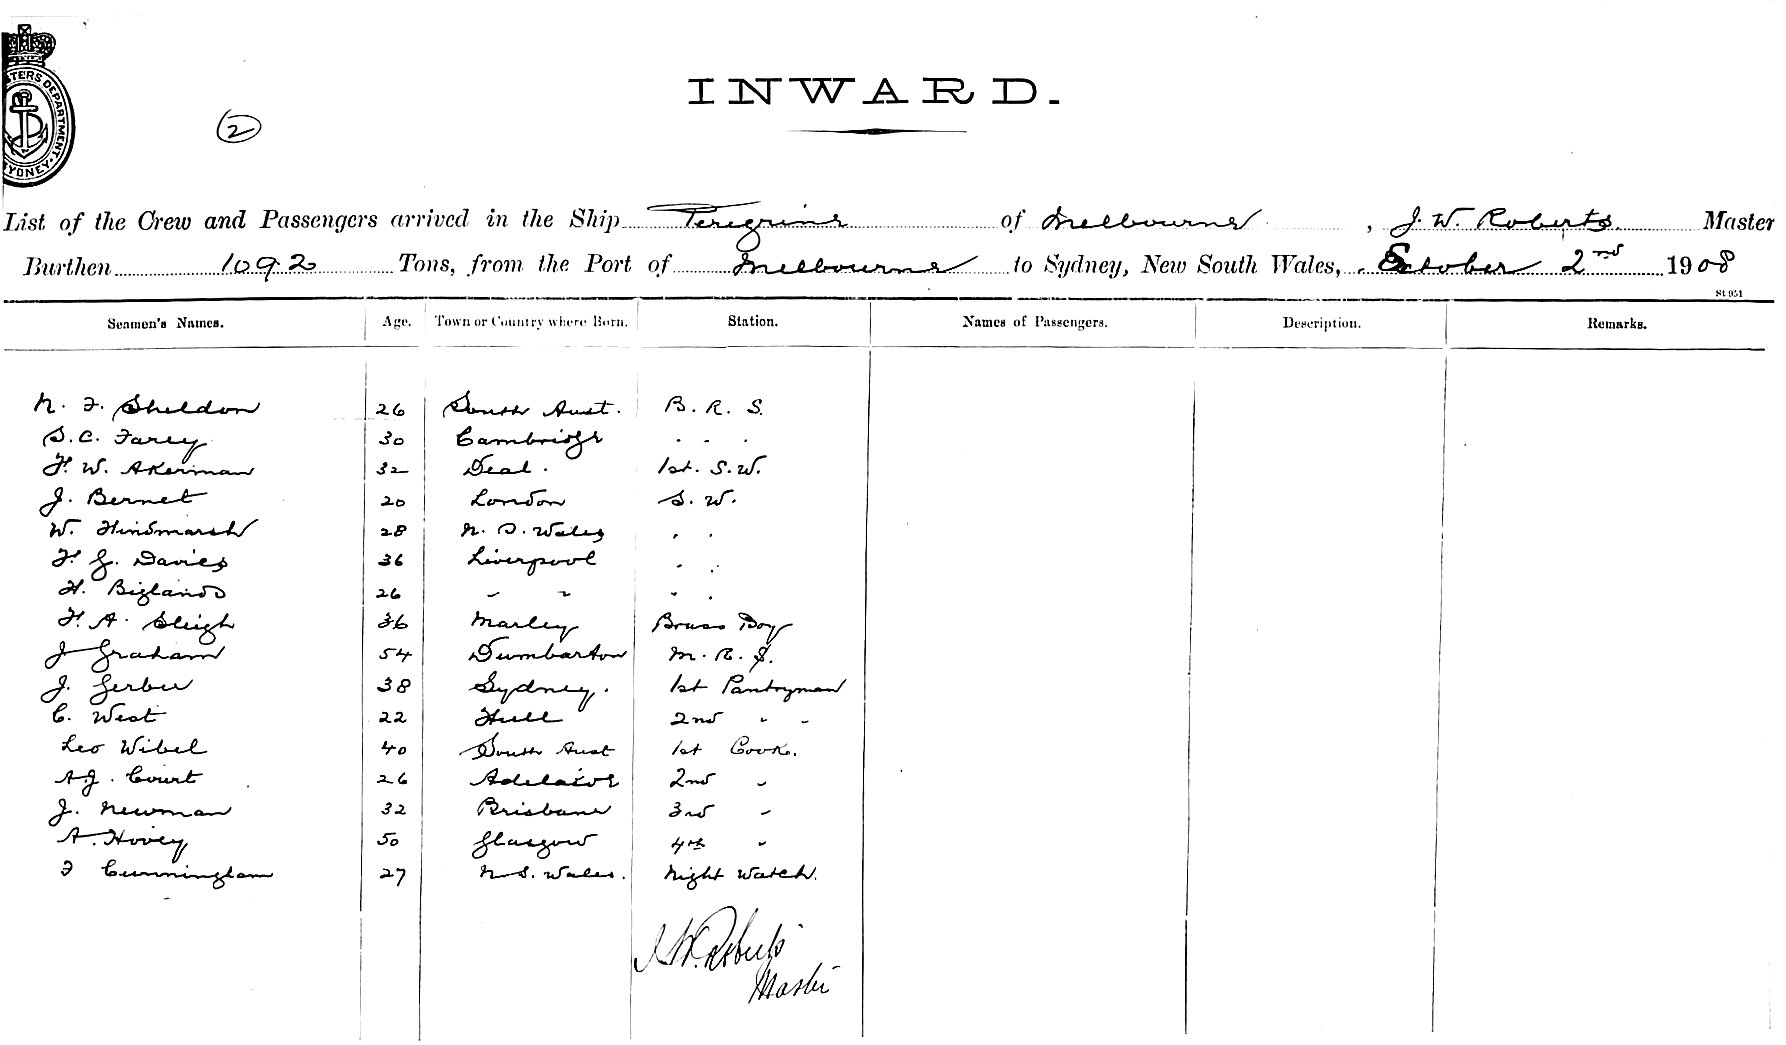 TERS DEPARTMENT · SYDNEY ·
INWARD.
2
List of the Crew and Passengers arrived in the Ship Peregrine of Melbourne, J. W. Roberts. Master
Burthen 1092 Tons, from the Port of Melbourne to Sydney, New South Wales, October 2nd 1908
St 951
Seamen's Names. Age. Town or Country where Born. Station. Names of Passengers. Description. Remarks.
N. F. Sheldon 26 South Aust. B. R. S.
S. C. Farey 30 Cambridge . . .
F. W. Akerman 32 Deal. 1st. S. W.
J. Bernet 20 London S. W.
W. Hindmarsh 28 N. S. Wales . .
F. G. Davies 36 Liverpool . .
H. Bigland 26 " " " .
F. A. Sleigh 36 Marley Brass Boy
J Graham 54 Dumbarton M. R. S.
J. Gerber 38 Sydney. 1st Pantryman
C. West 22 Hull 2nd " "
Leo Wibel 40 South Aust 1st Cook.
A. J. Court 26 Adelaide 2nd "
J. Newman 32 Brisbane 3rd "
A. Hovey 50 Glasgow 4th "
F Cunningham 27 N. S. Wales. Night Watch.
J W. Roberts
Master